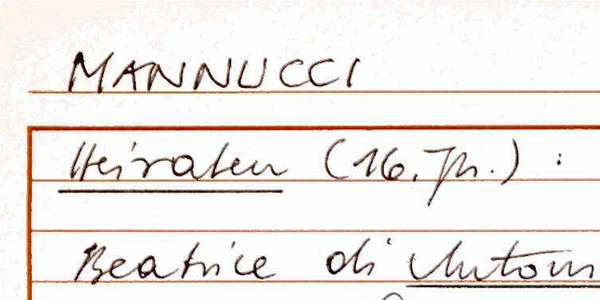 MANNUCCI
Heiraten (16. Jh.) :
Beatrice di